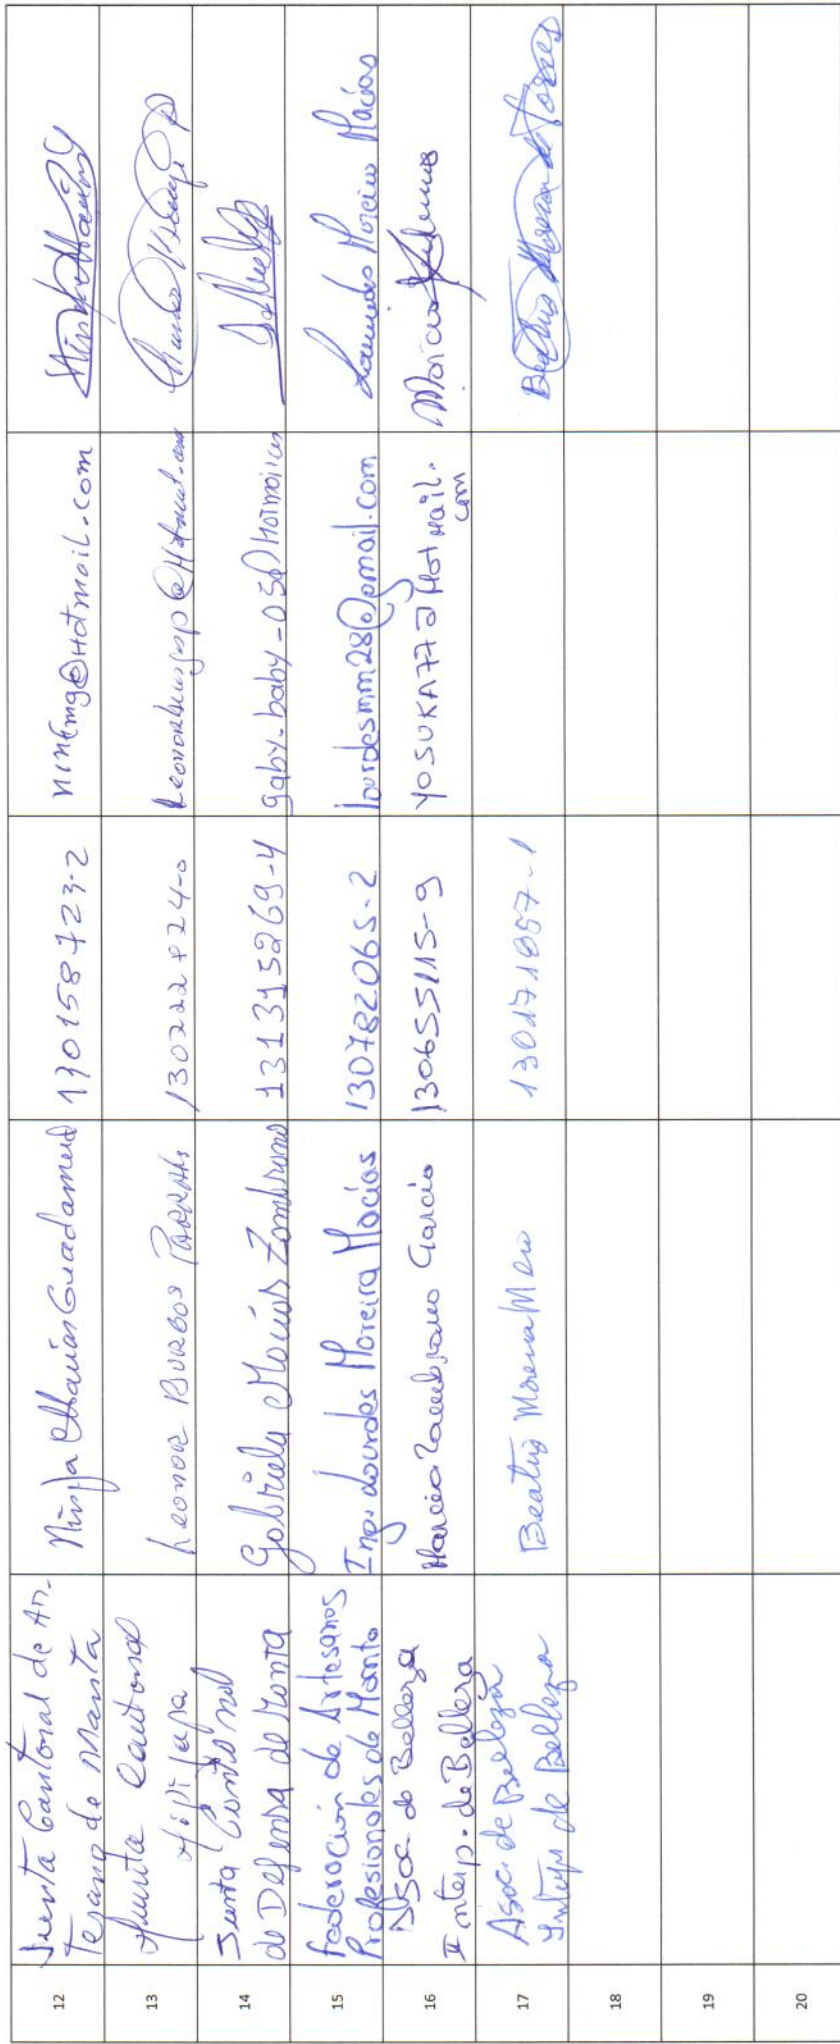 12
Junta Cantonal de Ar-
tesano de Manta
Ninfa Macías Guadamud
130158723-2
ninfmg@Hotmail.com
13
Junta Cantonal
Jipijapa
Leonor BURGOS PARRALES
14
Junta Cantonal
de Defensa de Manta
Gabriela Macías Zambrano
131315269-4
gaby-baby-05@Hotmail.com
15
Federación de Artesanos
Profesionales de Manta
Ing. Lourdes Moreira Macías
130782065-2
lourdesmm28@gmail.com
Lourdes Moreira Macías
16
Asoc de Belleza
Interp. de Belleza
Marcia Zambrano García
130655115-9
YOSUKA77@Hotmail.
com
17
Asoc. de Belleza
Interp de Belleza
130171857-1
18
19
20